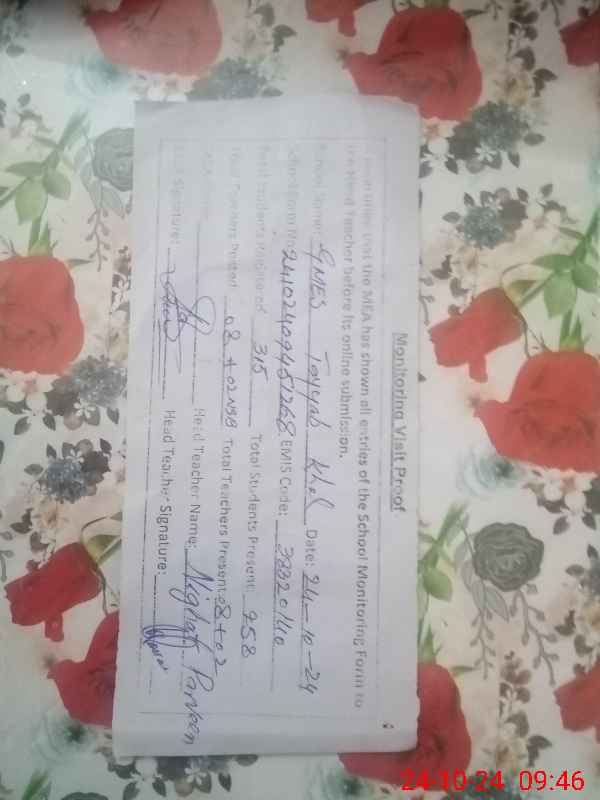 Monitoring Visit Proof
that the MEA has shown all entries of the School Monitoring Form to
the Head Teacher before its online submission.
School Name: GMES Tayyab Khel Date: 24-10-24
EMIS Code: 38320140
Total Students Registered 315 Total Students Present: 258
Total Teachers Posted 08 + 02 NSB Total Teachers Present: 08+02
Head Teacher Name: Nighat Parveen
Signature: Head Teacher Signature:
24-10-24 09:46